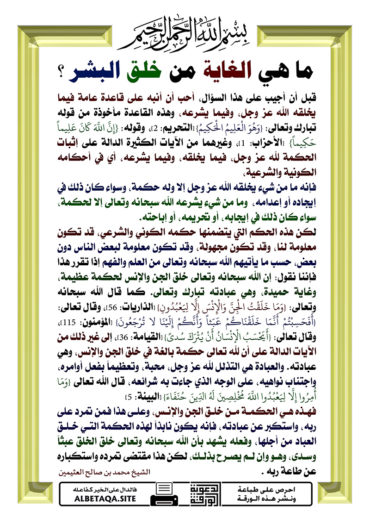 بسم الله الرحمن الرحيم
ما هي الغاية من خلق البشر ؟
قبل أن أجيب على هذا السؤال، أحب أن أنبه على قاعدة عامة فيما
يخلقه الله عز وجل، وفيما يشرعه، وهذه القاعدة مأخوذة من قوله
تبارك وتعالى: {وَهُوَ الْعَلِيمُ الْحَكِيمُ} التحريم: 2، وقوله: {إِنَّ اللَّهَ كَانَ عَلِيماً
حَكِيماً} الأحزاب: 1، وغيرهما من الآيات الكثيرة الدالة على إثبات
الحكمة لله عز وجل، فيما يخلقه، وفيما يشرعه، أي في أحكامه
الكونية والشرعية،
فإنه ما من شيء يخلقه الله عز وجل إلا وله حكمة، وسواء كان ذلك في
إيجاده أو إعدامه، وما من شيء يشرعه الله سبحانه وتعالى إلا لحكمة،
سواء كان ذلك في إيجابه، أو تحريمه، أو إباحته.
لكن هذه الحكم التي يتضمنها حكمه الكوني والشرعي، قد تكون
معلومة لنا، وقد تكون مجهولة، وقد تكون معلومة لبعض الناس دون
بعض، حسب ما يأتيهم الله سبحانه وتعالى من العلم والفهم إذا تقرر هذا
فإننا نقول: إن الله سبحانه وتعالى خلق الجن والإنس لحكمة عظيمة،
وغاية حميدة، وهي عبادته تبارك وتعالى، كما قال الله سبحانه
وتعالى: {وَمَا خَلَقْتُ الْجِنَّ وَالْإِنْسَ إِلَّا لِيَعْبُدُونِ} الذاريات: 56، وقال تعالى:
{أَفَحَسِبْتُمْ أَنَّمَا خَلَقْنَاكُمْ عَبَثاً وَأَنَّكُمْ إِلَيْنَا لا تُرْجَعُونَ} المؤمنون: 115،
وقال تعالى: {أَيَحْسَبُ الْإِنْسَانُ أَنْ يُتْرَكَ سُدىً} القيامة: 36، إلى غير ذلك من
الآيات الدالة على أن لله تعالى حكمة بالغة في خلق الجن والإنس، وهي
عبادته. والعبادة هي التذلل لله عز وجل، محبة، وتعظيماً بفعل أوامره،
واجتناب نواهيه، على الوجه الذي جاءت به شرائعه، قال الله تعالى {وَمَا
أُمِرُوا إِلَّا لِيَعْبُدُوا اللَّهَ مُخْلِصِينَ لَهُ الدِّينَ حُنَفَاءَ} البينة: 5
فهذه هي الحكمة من خلق الجن والإنس، وعلى هذا فمن تمرد على
ربه، واستكبر عن عبادته، فإنه يكون نابذاً لهذه الحكمة التي خلق
العباد من أجلها، وفعله يشهد بأن الله سبحانه وتعالى خلق الخلق عبثاً
وسدى، وهو وإن لم يصرح بذلك، لكن هذا مقتضى تمرده واستكباره
عن طاعة ربه .
الشيخ محمد بن صالح العثيمين
احرص على طباعة
ونشر هذه الورقة
الدعوية
الورقة
فالدال على الخير كفاعله
ALBETAQA.SITE